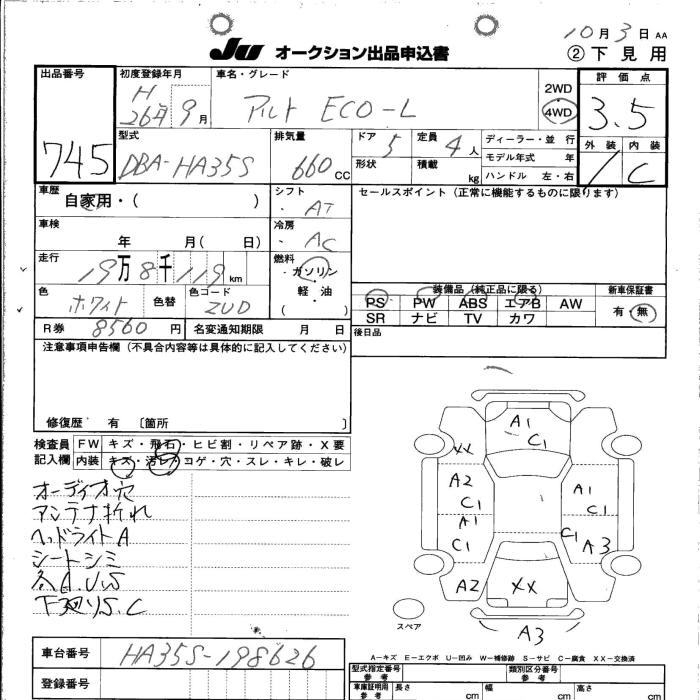 10月3日 AA
JU オークション出品申込書
②下見用
出品番号
745
初度登録年月
H
26年 9月
車名・グレード
アルト ECO-L
2WD
4WD
評価点
3.5
外装 内装
/ C
型式
DBA-HA35S
排気量
660 CC
ドア
5
定員
4人
形状
積載
kg
ディーラー・並行
モデル年式 年
ハンドル 左・右
車歴
自家用・( )
シフト
・AT
セールスポイント(正常に機能するものに限ります)
車検
年 月( 日)
冷房
・AC
走行
19万8千119km
燃料
ガソリン
軽・油
( )
色
ホワイト
色替
色コード
ZUD
装備品(純正品に限る)
PS PW ABS エアB AW
SR ナビ TV カワ
新車保証書
有・無
R券 8560円
名変通知期限 月 日
後日品
注意事項申告欄(不具合内容等は具体的に記入してください)
修復歴 有 〔箇所 〕
検査員
記入欄
FW キズ・飛石・ヒビ割・リペア跡・X要
内装 キズ・汚レ・コゲ・穴・スレ・キレ・破レ
オーディオ穴
アンテナ折れ
ヘッドライトA
シートシミ
各A.U.S
下廻りS.C
A1
C1
XX
A2
C1
A1
C1
A1
C1
C1
A3
A2
XX
スペア
A3
A-キズ E-エクボ U-凹み W-補修跡 S-サビ C-腐食 XX-交換済
車台番号
HA35S-198626
登録番号
型式指定番号
参考
類別区分番号
参考
車庫証明用
参考
長さ
cm
幅
cm
高さ
cm